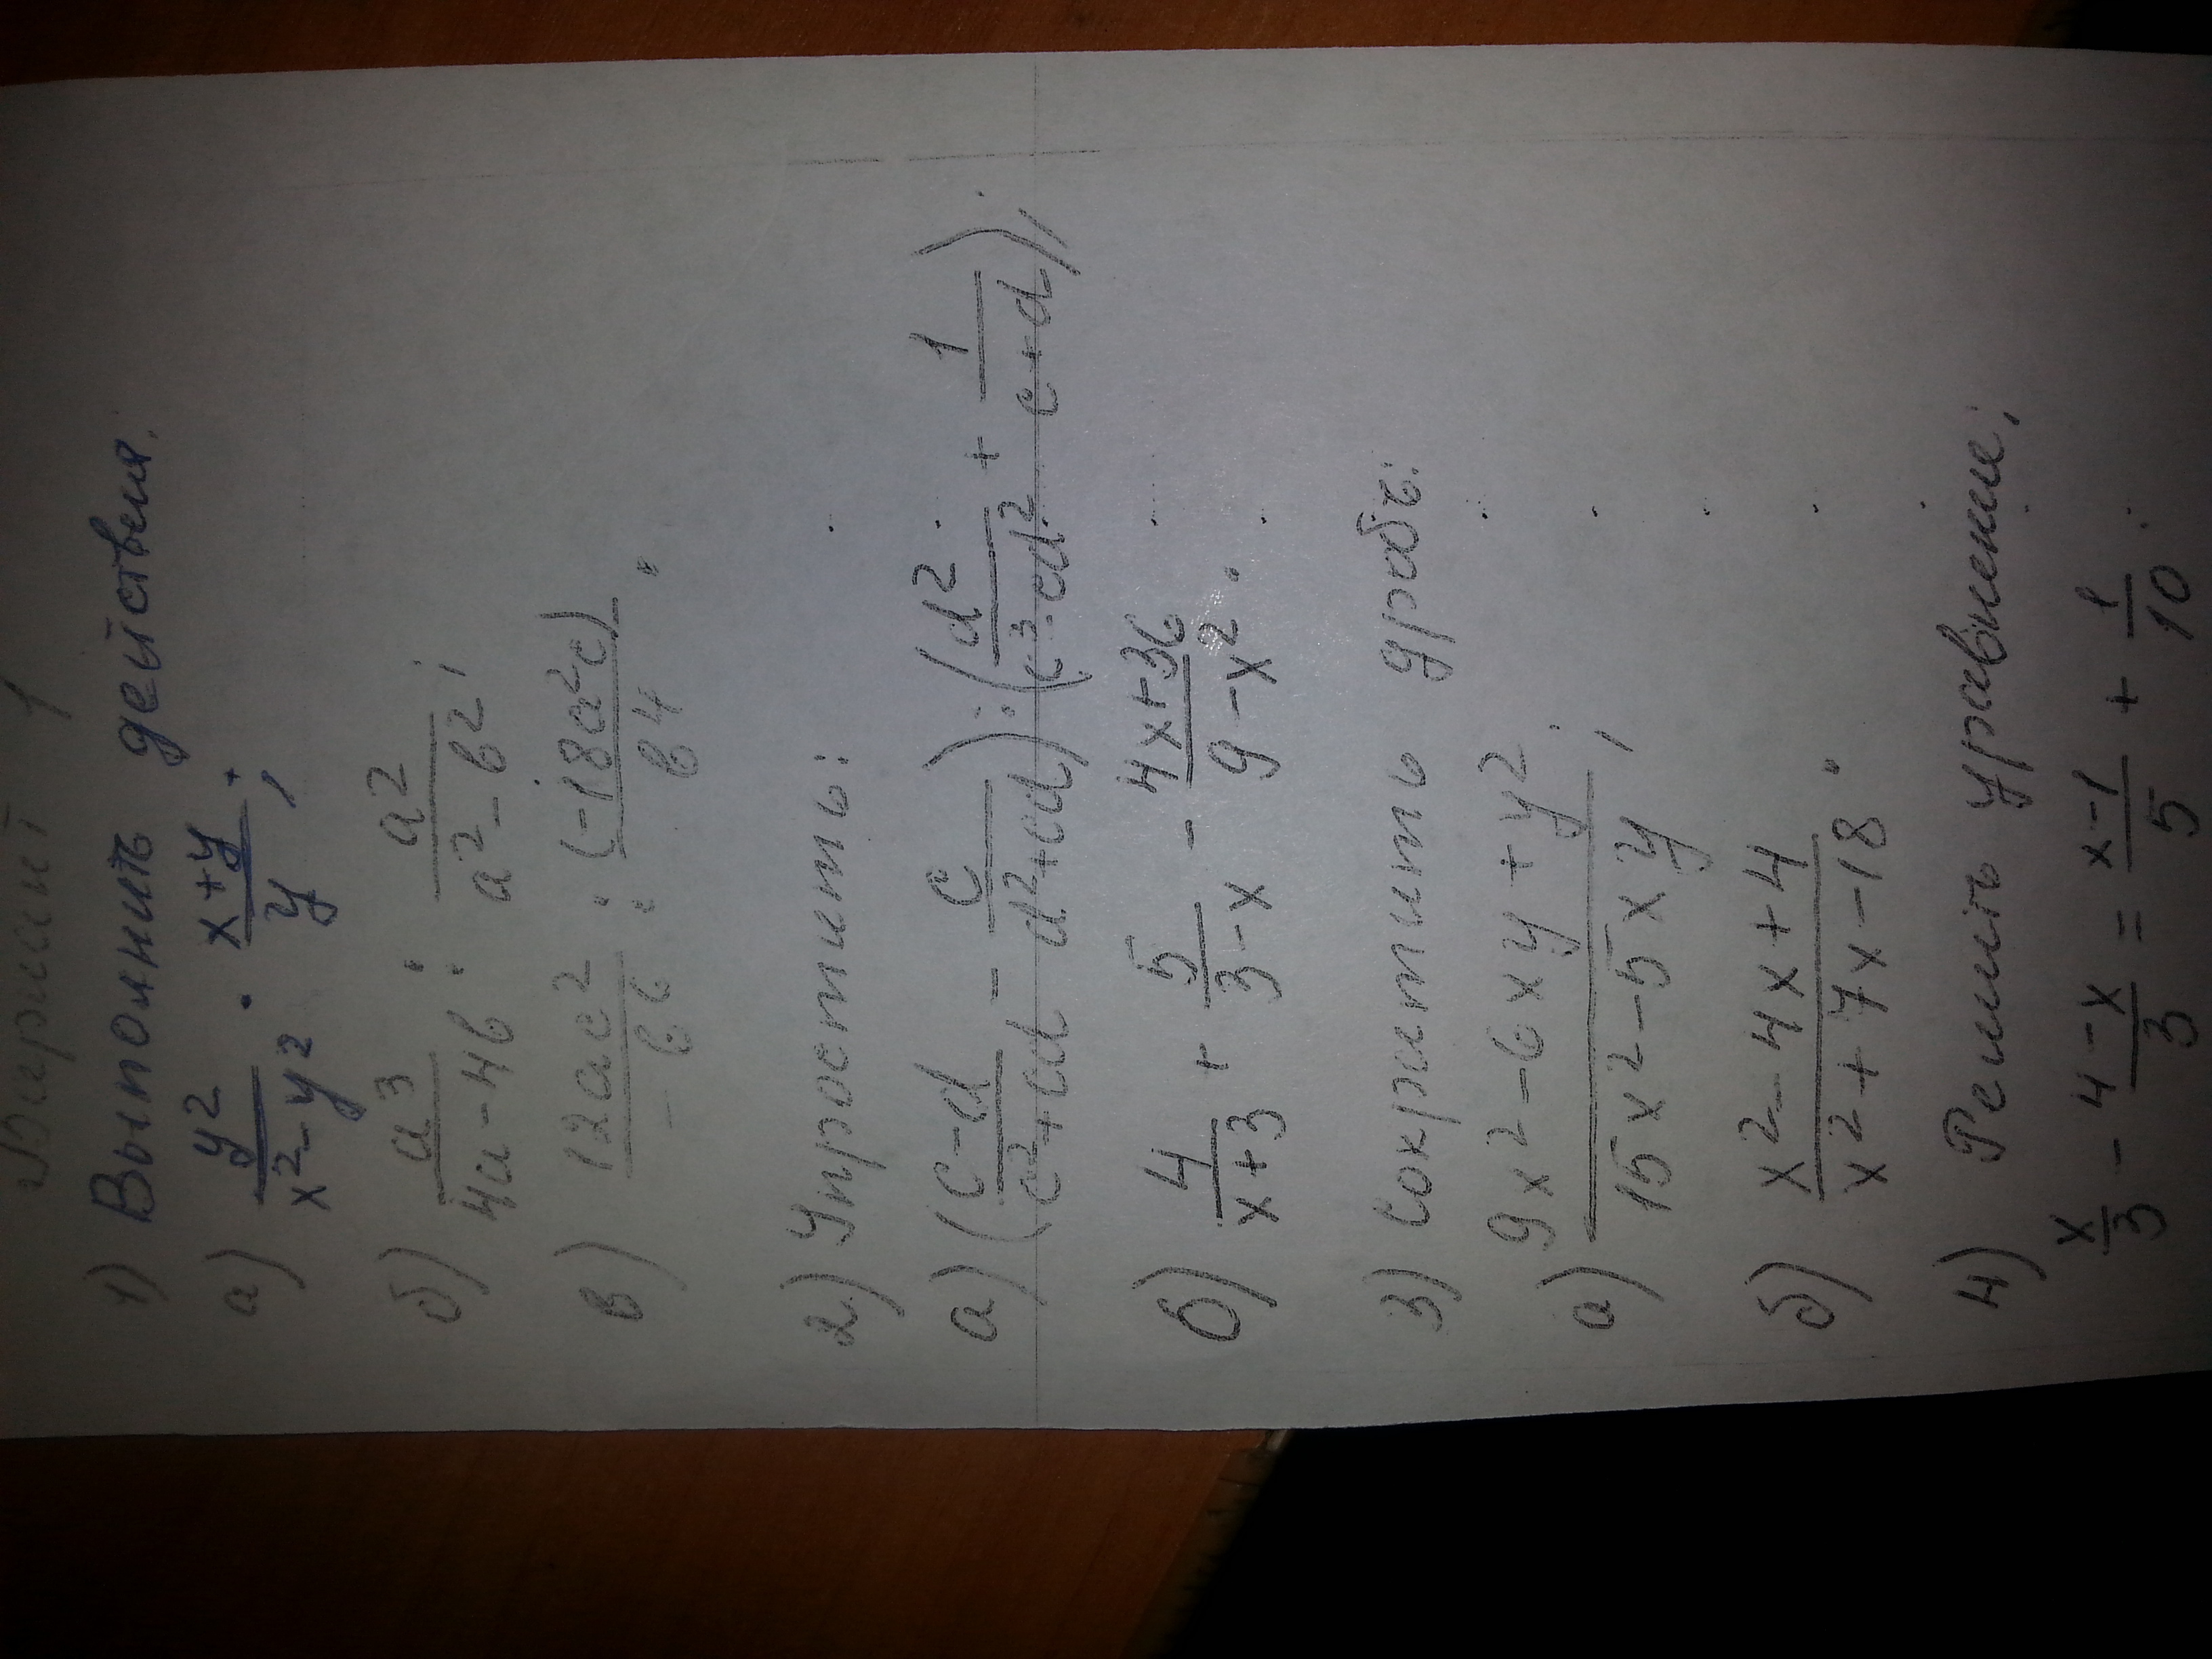 Вариант 1
1) Выполнить действия.
а) y²/(x²-y²) · (x+y)/y ;
б) a³/(4a-4b) : a²/(a²-b²) ;
в) 12ac²/(-b⁶) : (-18a²c)/b⁴ .
2) Упростить:
а) ((c-d)/(c²+cd) - c/(d²+cd)) : (d²/(c³-cd²) + 1/(c+d)) ;
б) 4/(x+3) + 5/(3-x) - (4x+36)/(9-x²) .
3) Сократить дробь:
а) (9x²-6xy+y²)/(15x²-5xy) ;
б) (x²-4x+4)/(x²+7x-18) .
4) Решить уравнение:
x/3 - (4-x)/3 = (x-1)/5 + 1/10 .